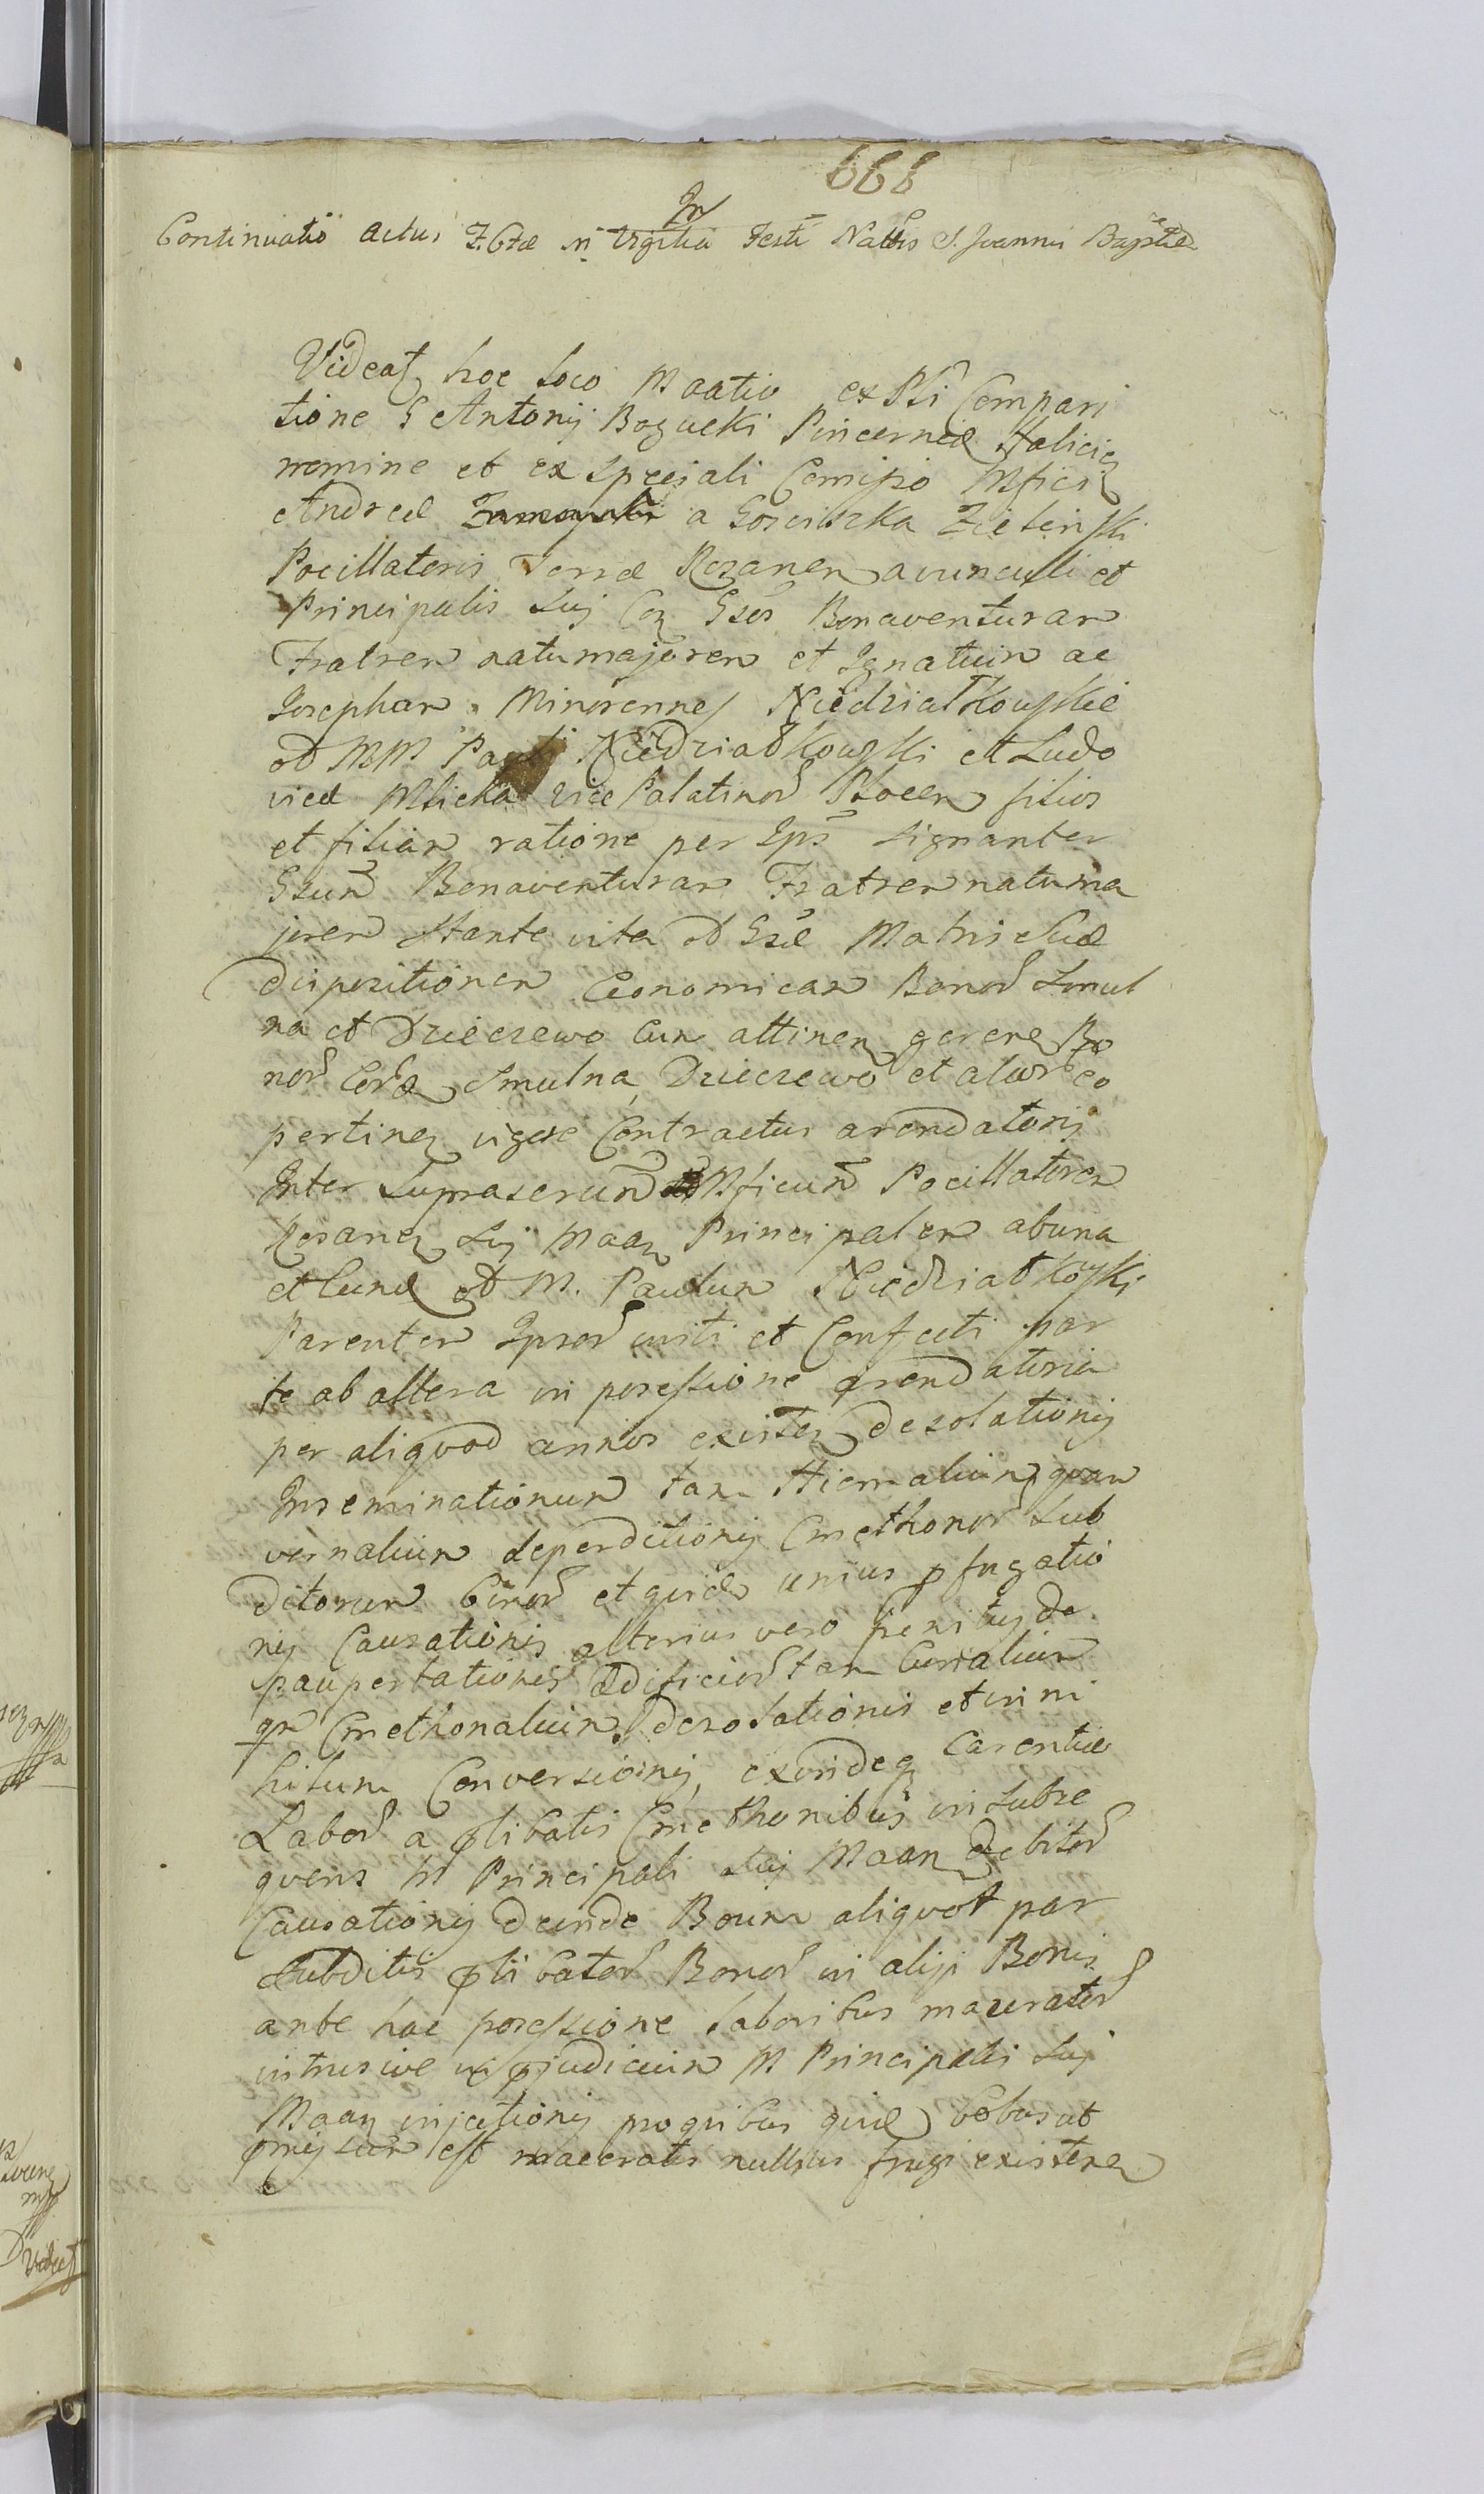 666
In
Continuatio Actus F. 6tæ in Vigilia Festi Nattis S. Joannis Baptæ
Videat hoc loco Maatio ex Psti Compari
tione G Antonij Bogucki Pincernæ Halicien
nomine et ex speciali Comisso Mfici
Andreæ a Gosciszka Zielinski
Pocillatoris Terræ Rozanen avunculi et
Principalis sui Con Gsos Bonaventuram
Fratrem natu majorem et Ignatium ac
Josepham Minorennes Niedziałkowskie
olt MM Pauli Niedziałkowski et Ludo
vicæ Mlicka Vice Palatinor Plocen filios
et filiam ratione per Ipsos signanter
Gsum Bonaventuram Fratrem natu ma
jorem stante vita olt Gsæ Matris Suæ
dispositionem Œconomicam Bonor Smul
na et Dzieczewo cum attinen gerene Bo
nor Smulna Dzieczewo et alior eo
pertinen vigore Contractus arendatorij
Inter suprascrum Mficum Pocillatorem
Rozanen sui Maan Principalem ab una
et eund olt M. Paulum Niedziałkoski
Parentem Ipsor initi et Confecti par
te ab altera in possessione arendatoria
per aliquod annos existen desolationis
Inseminationum tam Hiemalium quam
vernalium deperditionis Cmethonor sub
ditorum binor et quid unius pfugatio
nis Causationis alterius vero penitus de
paupertationis ædificior tam Curialium
qm Cmethonalium desolationis et in ni
hilum Conversionis, exindeq Carentiæ
Labor a plibatis Cmethonibus in subse
quens M Principali sui Maan debitor
Causationis deinde Boum aliquot par
Subditis plibator Bonor in alijs Bonis
ante hac possessione laboribus macerator
intrusive in pjudicium M Principalis sui
Maan injectionis pro quibus quid bobus ut
pmissum est maceratis nullius frugi existen